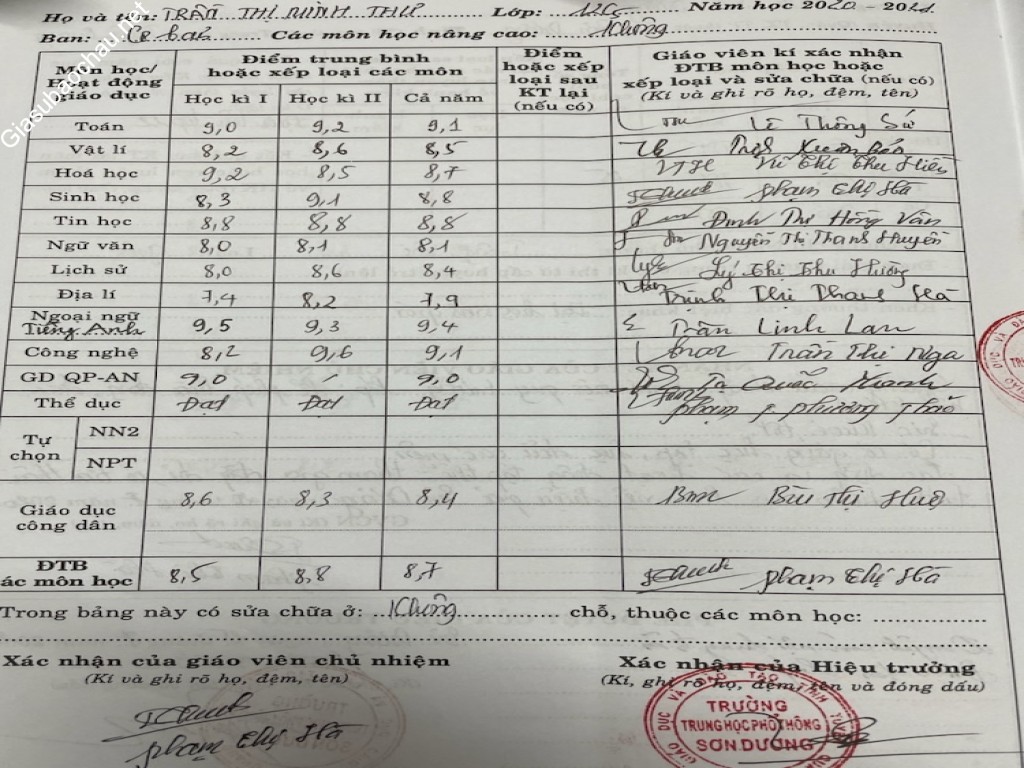 Họ và tên: TRẦN THỊ MINH THƯ Lớp: 12C Năm học 2020 - 2021
Ban: Cơ bản Các môn học nâng cao: Không
Môn học/ Hoạt động giáo dục
Điểm trung bình hoặc xếp loại các môn
Học kì I Học kì II Cả năm
Điểm hoặc xếp loại sau KT lại (nếu có)
Giáo viên kí xác nhận ĐTB môn học hoặc xếp loại và sửa chữa (nếu có)
(Kí và ghi rõ họ, đệm, tên)
Toán 9,0 9,2 9,1 Lê Thống Sứ
Vật lí 8,2 8,6 8,5
Hoá học 9,2 8,5 8,7 Vũ Thị Thu Hiền
Sinh học 8,3 9,1 8,8 Phạm Thị Hà
Tin học 8,8 8,8 8,8 Đinh Thị Hồng Vân
Ngữ văn 8,0 8,1 8,1 Nguyễn Thị Thanh Huyền
Lịch sử 8,0 8,6 8,4 Lý Thị Thu Hường
Địa lí 7,4 8,2 7,9 Trịnh Thị Thanh Hà
Ngoại ngữ
Tiếng Anh 9,5 9,3 9,4 Trần Linh Lan
Công nghệ 8,2 9,6 9,1 Trần Thị Nga
GD QP-AN 9,0 / 9,0 Tạ Quốc Khanh
Thể dục Đạt Đạt Đạt Phạm T Phương Thảo
Tự chọn
NN2
NPT
Giáo dục công dân 8,6 8,3 8,4 Bùi Thị Huệ
ĐTB
ác môn học 8,5 8,8 8,7 Phạm Thị Hà
Trong bảng này có sửa chữa ở: Không chỗ, thuộc các môn học:
Xác nhận của giáo viên chủ nhiệm
(Kí và ghi rõ họ, đệm, tên)
Phạm Thị Hà
Xác nhận của Hiệu trưởng
(Kí, ghi rõ họ, đệm, tên và đóng dấu)
TRƯỜNG
TRUNG HỌC PHỔ THÔNG
SƠN DƯƠNG
Giasubaochau.net